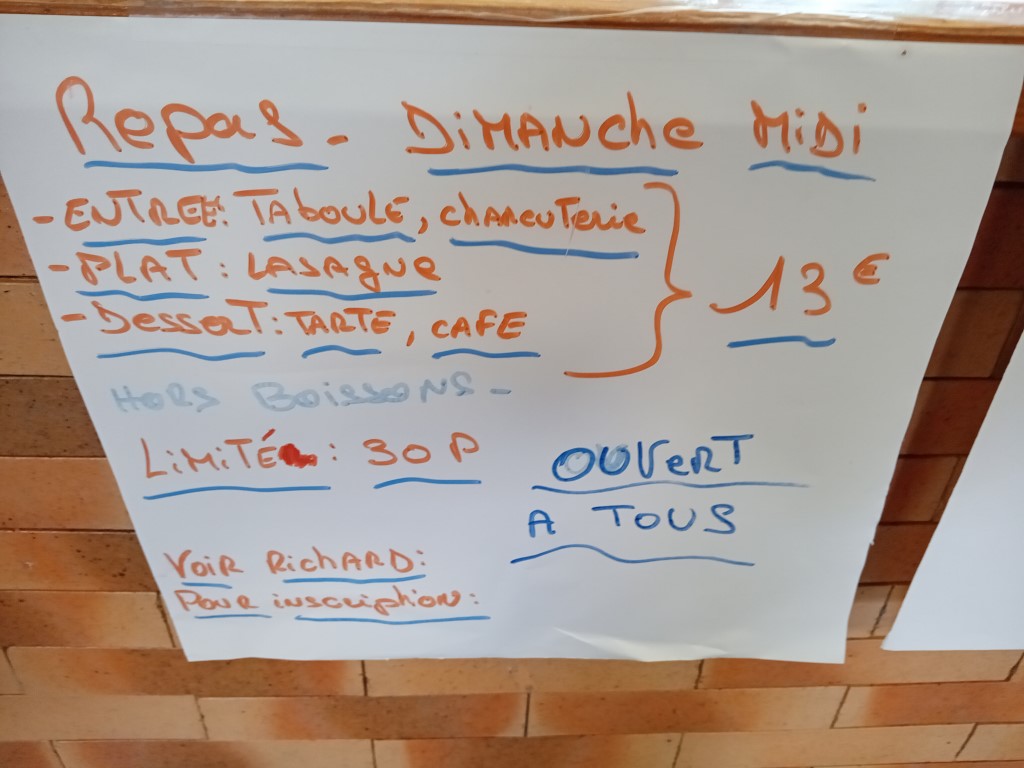 Repas - DiMANche MiDi
- ENTREE: TABOULE, chARcuTerie
- PLAT : LASAgNe
- DesserT: TARTE, CAFE
13 €
HORS BOissONS -
LiMiTÉ : 30 P
OUVerT
A TOUS
Voir RichARD:
Pour inscription: